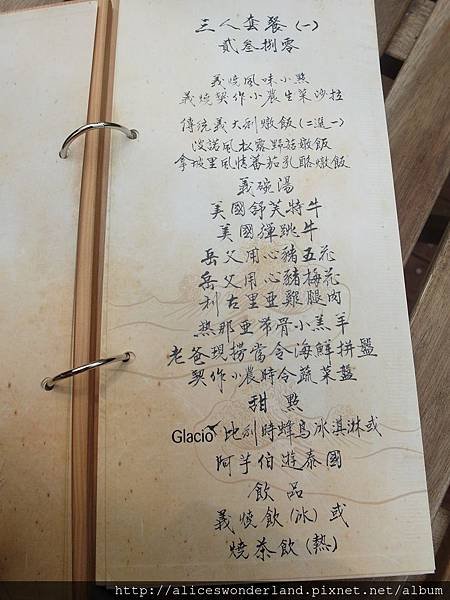 三人套餐(一)
貳叁捌零
義燒風味小點
義燒契作小農生菜沙拉
傳統義大利燉飯(二選一)
波諾風松露野菇燉飯
拿坡里風情蕃茄乳酪燉飯
義碗湯
美國舒芙特牛
美國彈跳牛
岳父用心豬五花
岳父用心豬梅花
利古里亞雞腿肉
熱那亞帶骨小羔羊
老爸現撈當令海鮮拼盤
契作小農時令蔬菜盤
甜點
Glacio 比利時蜂鳥冰淇淋或
阿芋伯遊泰國
飲品
義燒飲(冰)或
燒茶飲(熱)
http://aliceswonderland.pixnet.net/album